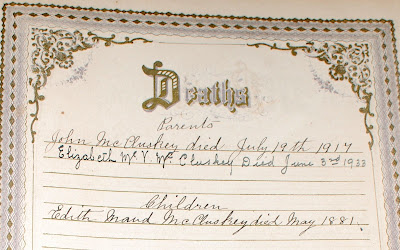 Deaths
Parents
John McCluskey died July 19th 1917
Elizabeth Mc. V. Mc Cluskey Died June 3rd 1933
Children
Edith Maud McCluskey died May 1881.